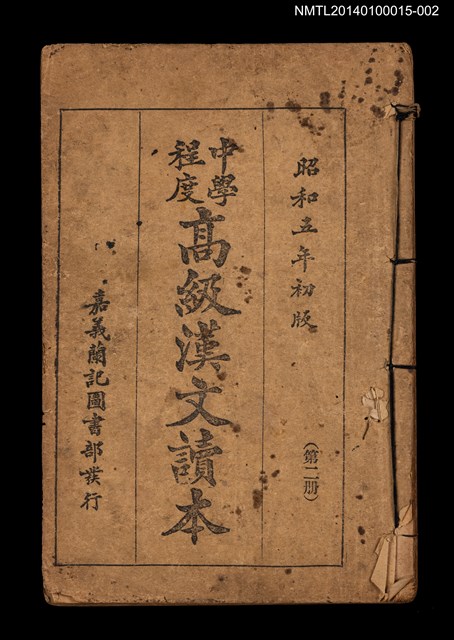 NMTL20140100015-002
昭和五年初版
(第二册)
中學
程度
高級漢文讀本
嘉義蘭記圖書部發行